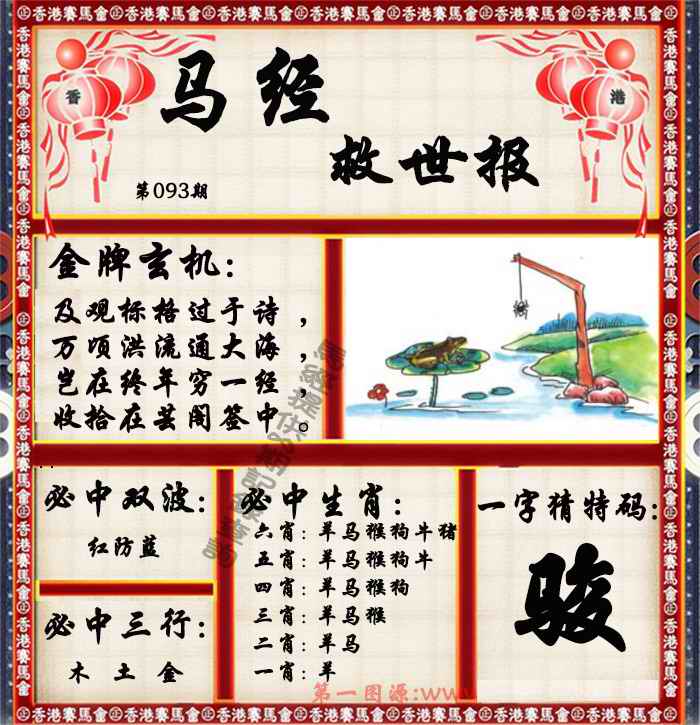 香港賽馬會㊣香港賽馬會㊣香港賽馬會㊣香港賽馬會㊣香港賽馬會㊣香港賽馬會
香
港
马经
救世报
第093期
金牌玄机：
及观标格过于诗，
万顷洪流通大海，
岂在终年穷一经，
收拾在芸阁签中。
必中双波：
红防蓝
必中三行：
木 土 金
必中生肖：
六肖：羊马猴狗牛猪
五肖：羊马猴狗牛
四肖：羊马猴狗
三肖：羊马猴
二肖：羊马
一肖：羊
一字猜特码：
骏
第一图源:www